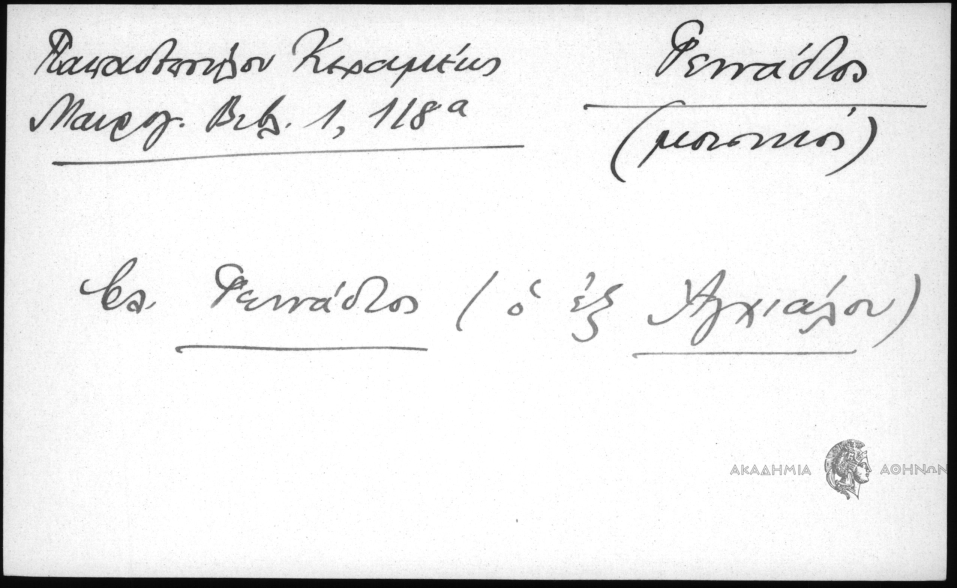 Παπαδοπούλου Κεραμέως
Μαυρογ. Βιβλ. 1, 118α
Γεννάδιος
(μουσικός)
βλ. Γεννάδιος (ὁ ἐξ Ἀγχιάλου)
ΑΚΑΔΗΜΙΑ ΑΘΗΝΩΝ